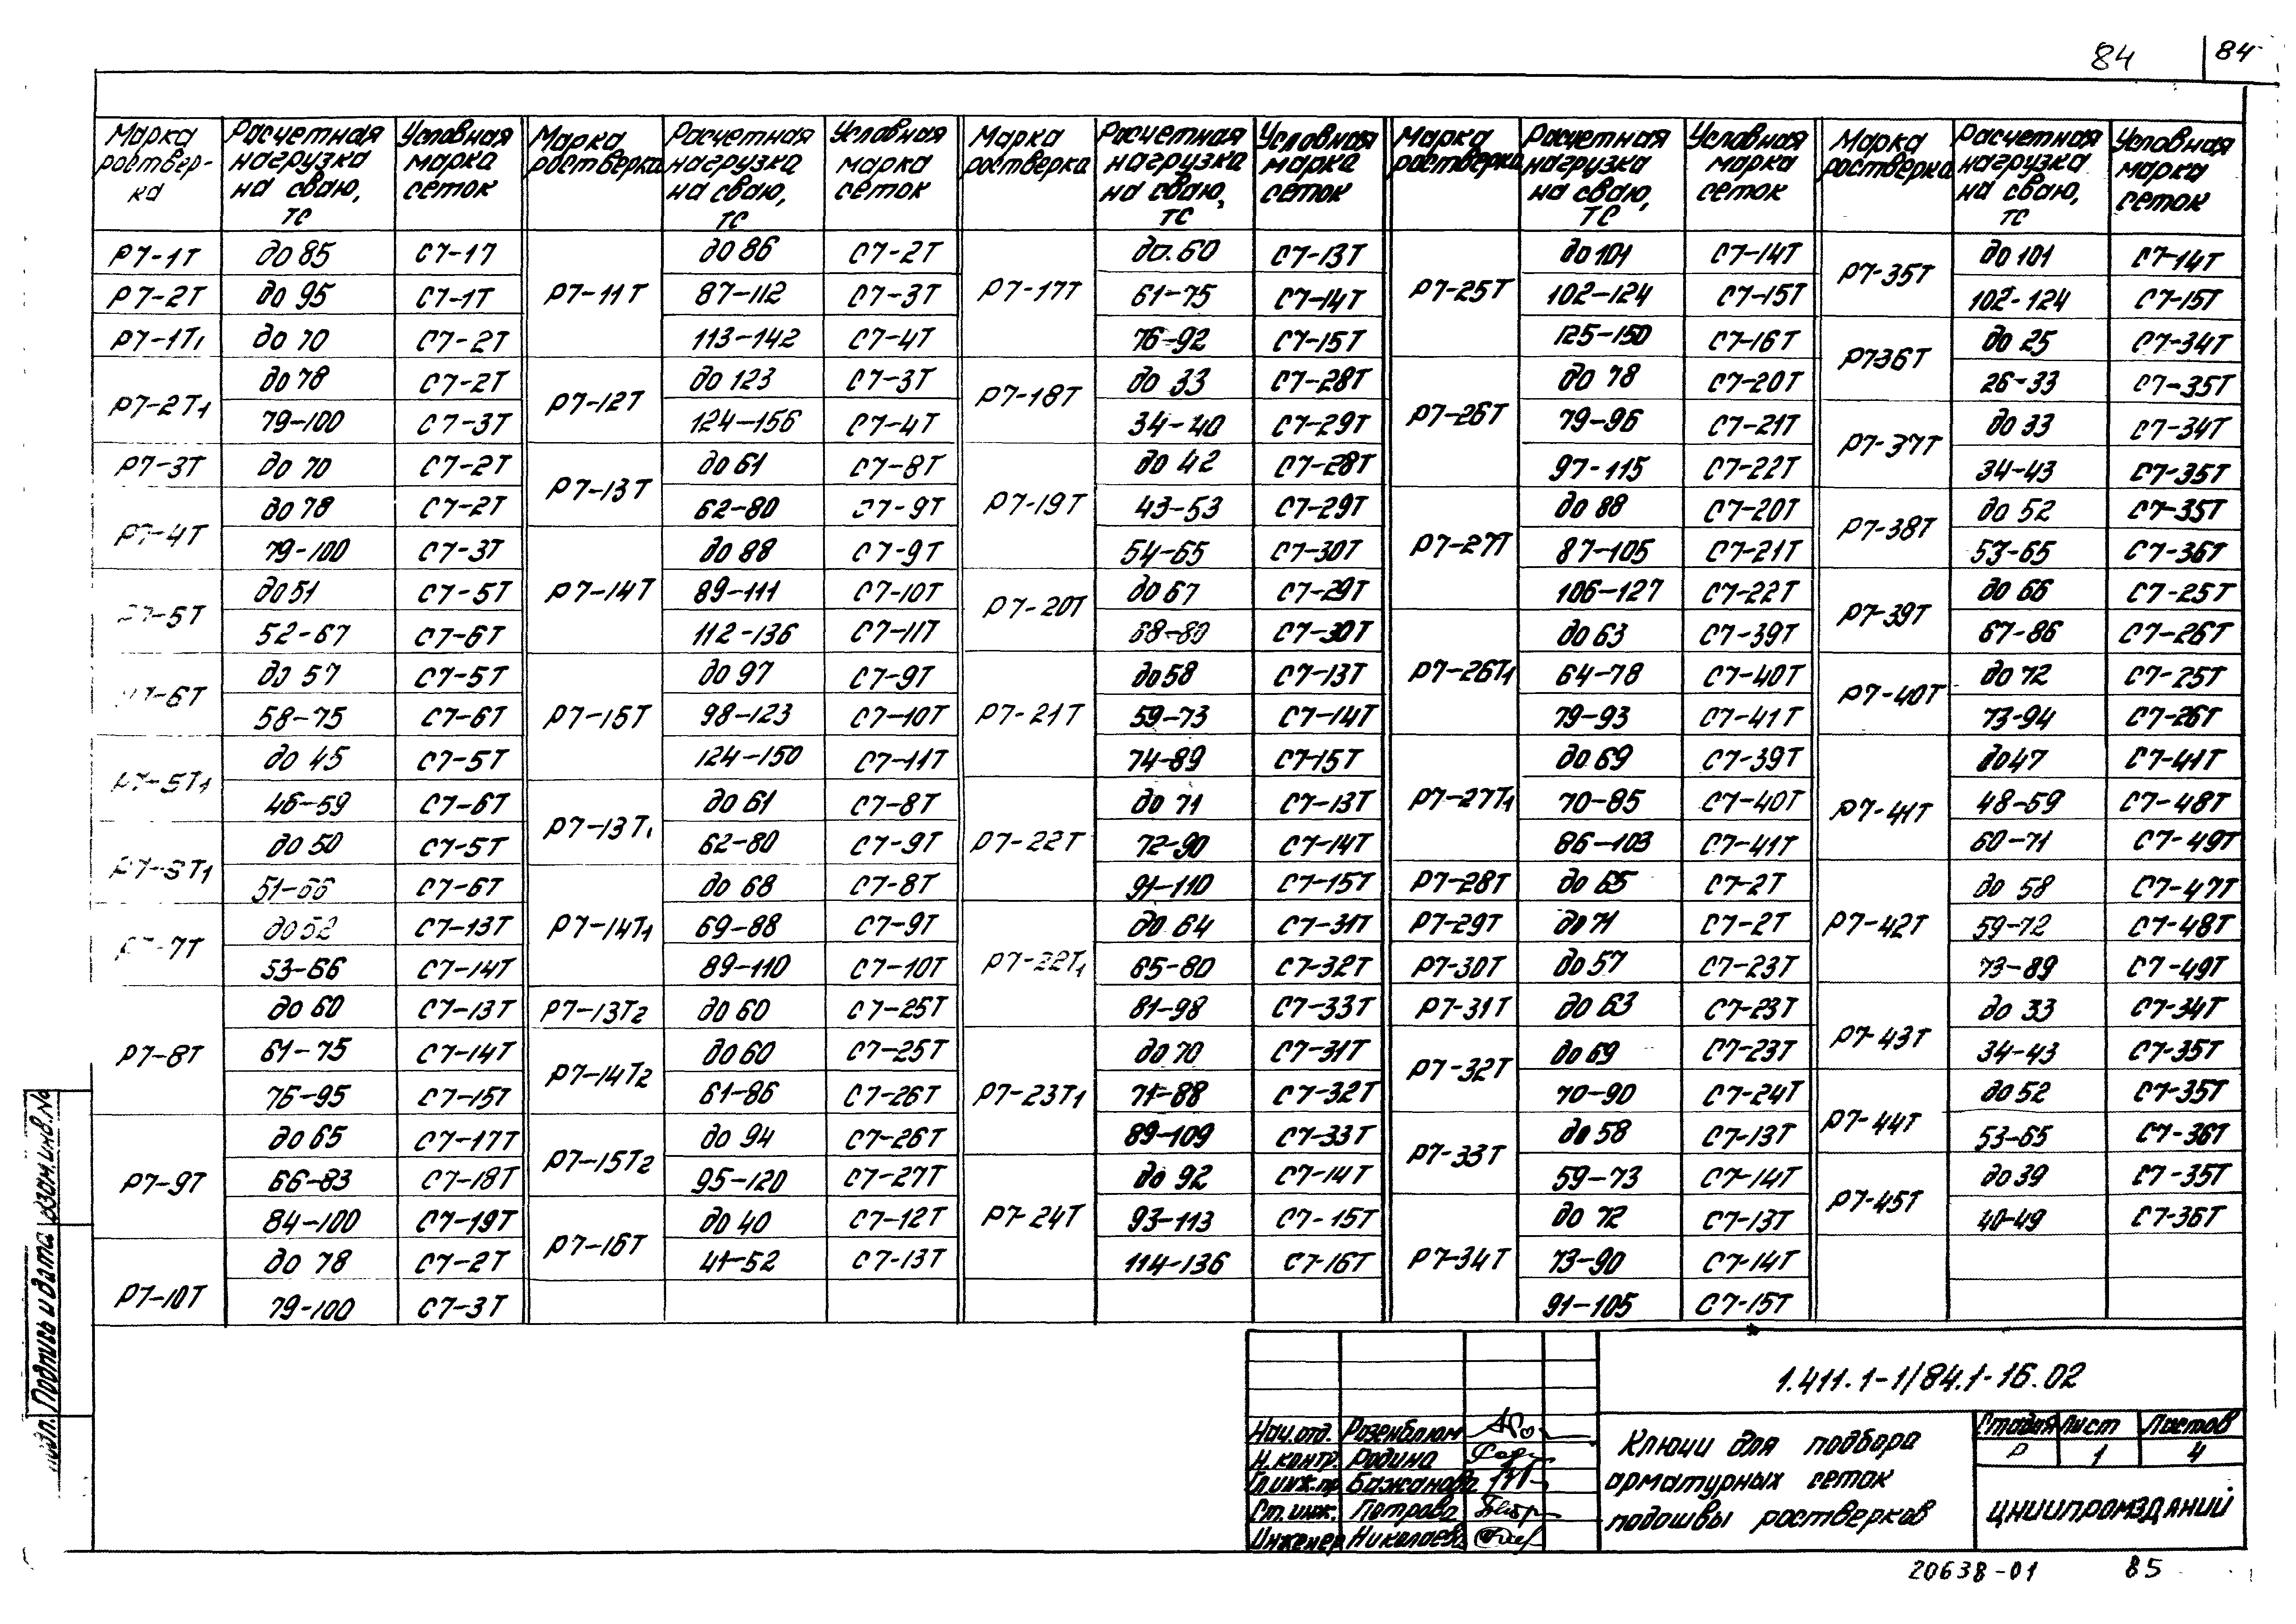 84
84
Марка ростверка
Расчетная нагрузка на сваю, тс
Условная марка сеток
Р7-1Т до 85 С7-17
Р7-2Т до 95 С7-1Т
Р7-1Т₁ до 70 С7-2Т
Р7-2Т₁ до 78 С7-2Т
79-100 С7-3Т
Р7-3Т до 70 С7-2Т
Р7-4Т до 78 С7-2Т
79-100 С7-3Т
7-5Т до 51 С7-5Т
52-67 С7-6Т
7-6Т до 57 С7-5Т
58-75 С7-6Т
Р7-5Т₁ до 45 С7-5Т
46-59 С7-6Т
до 50 С7-5Т
51-66 С7-6Т
7-7Т до 52 С7-13Т
53-66 С7-14Т
Р7-8Т до 60 С7-13Т
61-75 С7-14Т
76-95 С7-15Т
Р7-9Т до 65 С7-17Т
66-83 С7-18Т
84-100 С7-19Т
Р7-10Т до 78 С7-2Т
79-100 С7-3Т
Марка ростверка
Расчетная нагрузка на сваю, тс
Условная марка сеток
Р7-11Т до 86 С7-2Т
87-112 С7-3Т
113-142 С7-4Т
Р7-12Т до 123 С7-3Т
124-156 С7-4Т
Р7-13Т до 61 С7-8Т
62-80 С7-9Т
Р7-14Т до 88 С7-9Т
89-111 С7-10Т
112-136 С7-11Т
Р7-15Т до 97 С7-9Т
98-123 С7-10Т
124-150 С7-11Т
Р7-13Т₁ до 61 С7-8Т
62-80 С7-9Т
Р7-14Т₁ до 68 С7-8Т
69-88 С7-9Т
89-110 С7-10Т
Р7-13Т₂ до 60 С7-25Т
Р7-14Т₂ до 60 С7-25Т
61-86 С7-26Т
Р7-15Т₂ до 94 С7-26Т
95-120 С7-27Т
Р7-16Т до 40 С7-12Т
41-52 С7-13Т
Марка ростверка
Расчетная нагрузка на сваю, тс
Условная марка сеток
Р7-17Т до 60 С7-13Т
61-75 С7-14Т
76-92 С7-15Т
Р7-18Т до 33 С7-28Т
34-40 С7-29Т
Р7-19Т до 42 С7-28Т
43-53 С7-29Т
54-65 С7-30Т
Р7-20Т до 67 С7-29Т
68-80 С7-30Т
Р7-21Т до 58 С7-13Т
59-73 С7-14Т
74-89 С7-15Т
Р7-22Т до 71 С7-13Т
72-90 С7-14Т
91-110 С7-15Т
Р7-22Т₁ до 64 С7-31Т
65-80 С7-32Т
81-98 С7-33Т
Р7-23Т₁ до 70 С7-31Т
71-88 С7-32Т
89-109 С7-33Т
Р7-24Т до 92 С7-14Т
93-113 С7-15Т
114-136 С7-16Т
Марка ростверка
Расчетная нагрузка на сваю, тс
Условная марка сеток
Р7-25Т до 101 С7-14Т
102-124 С7-15Т
125-150 С7-16Т
Р7-26Т до 78 С7-20Т
79-96 С7-21Т
97-115 С7-22Т
Р7-27Т до 88 С7-20Т
87-105 С7-21Т
106-127 С7-22Т
Р7-26Т₁ до 63 С7-39Т
64-78 С7-40Т
79-93 С7-41Т
Р7-27Т₁ до 69 С7-39Т
70-85 С7-40Т
86-103 С7-41Т
Р7-28Т до 65 С7-2Т
Р7-29Т до 71 С7-2Т
Р7-30Т до 57 С7-23Т
Р7-31Т до 63 С7-23Т
Р7-32Т до 69 С7-23Т
70-90 С7-24Т
Р7-33Т до 58 С7-13Т
59-73 С7-14Т
Р7-34Т до 72 С7-13Т
73-90 С7-14Т
91-105 С7-15Т
Марка ростверка
Расчетная нагрузка на сваю, тс
Условная марка сеток
Р7-35Т до 101 С7-14Т
102-124 С7-15Т
Р736Т до 25 С7-34Т
26-33 С7-35Т
Р7-37Т до 33 С7-34Т
34-43 С7-35Т
Р7-38Т до 52 С7-35Т
53-65 С7-36Т
Р7-39Т до 66 С7-25Т
67-86 С7-26Т
Р7-40Т до 72 С7-25Т
73-94 С7-26Т
Р7-41Т до 47 С7-41Т
48-59 С7-48Т
60-71 С7-49Т
Р7-42Т до 58 С7-47Т
59-72 С7-48Т
73-89 С7-49Т
Р7-43Т до 33 С7-34Т
34-43 С7-35Т
Р7-44Т до 52 С7-35Т
53-65 С7-36Т
Р7-45Т до 39 С7-35Т
40-49 С7-36Т
подл. Подпись и дата Взам.инв.№
1.411.1-1/84.1-16.02
Нач.отд. Розенблюм
Н.контр. Родина
Гл.инж.пр Бажанова
Ст.инж. Петрова
Инженер Николаева
Ключи для подбора
арматурных сеток
подошвы ростверков
Стадия Лист Листов
Р 1 4
ЦНИИПРОМЗДАНИЙ
20638-01 85